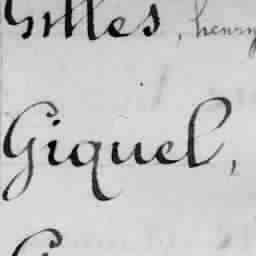 Gilles, henry
Giquel,